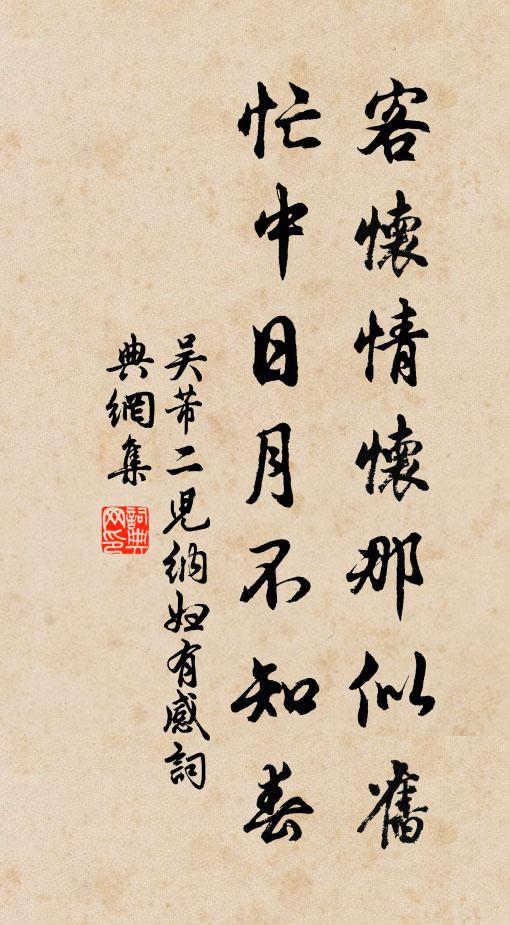 客懷情懷那似舊
忙中日月不知春
吴芾二児納婦有感詞
典網集
詞典
网印